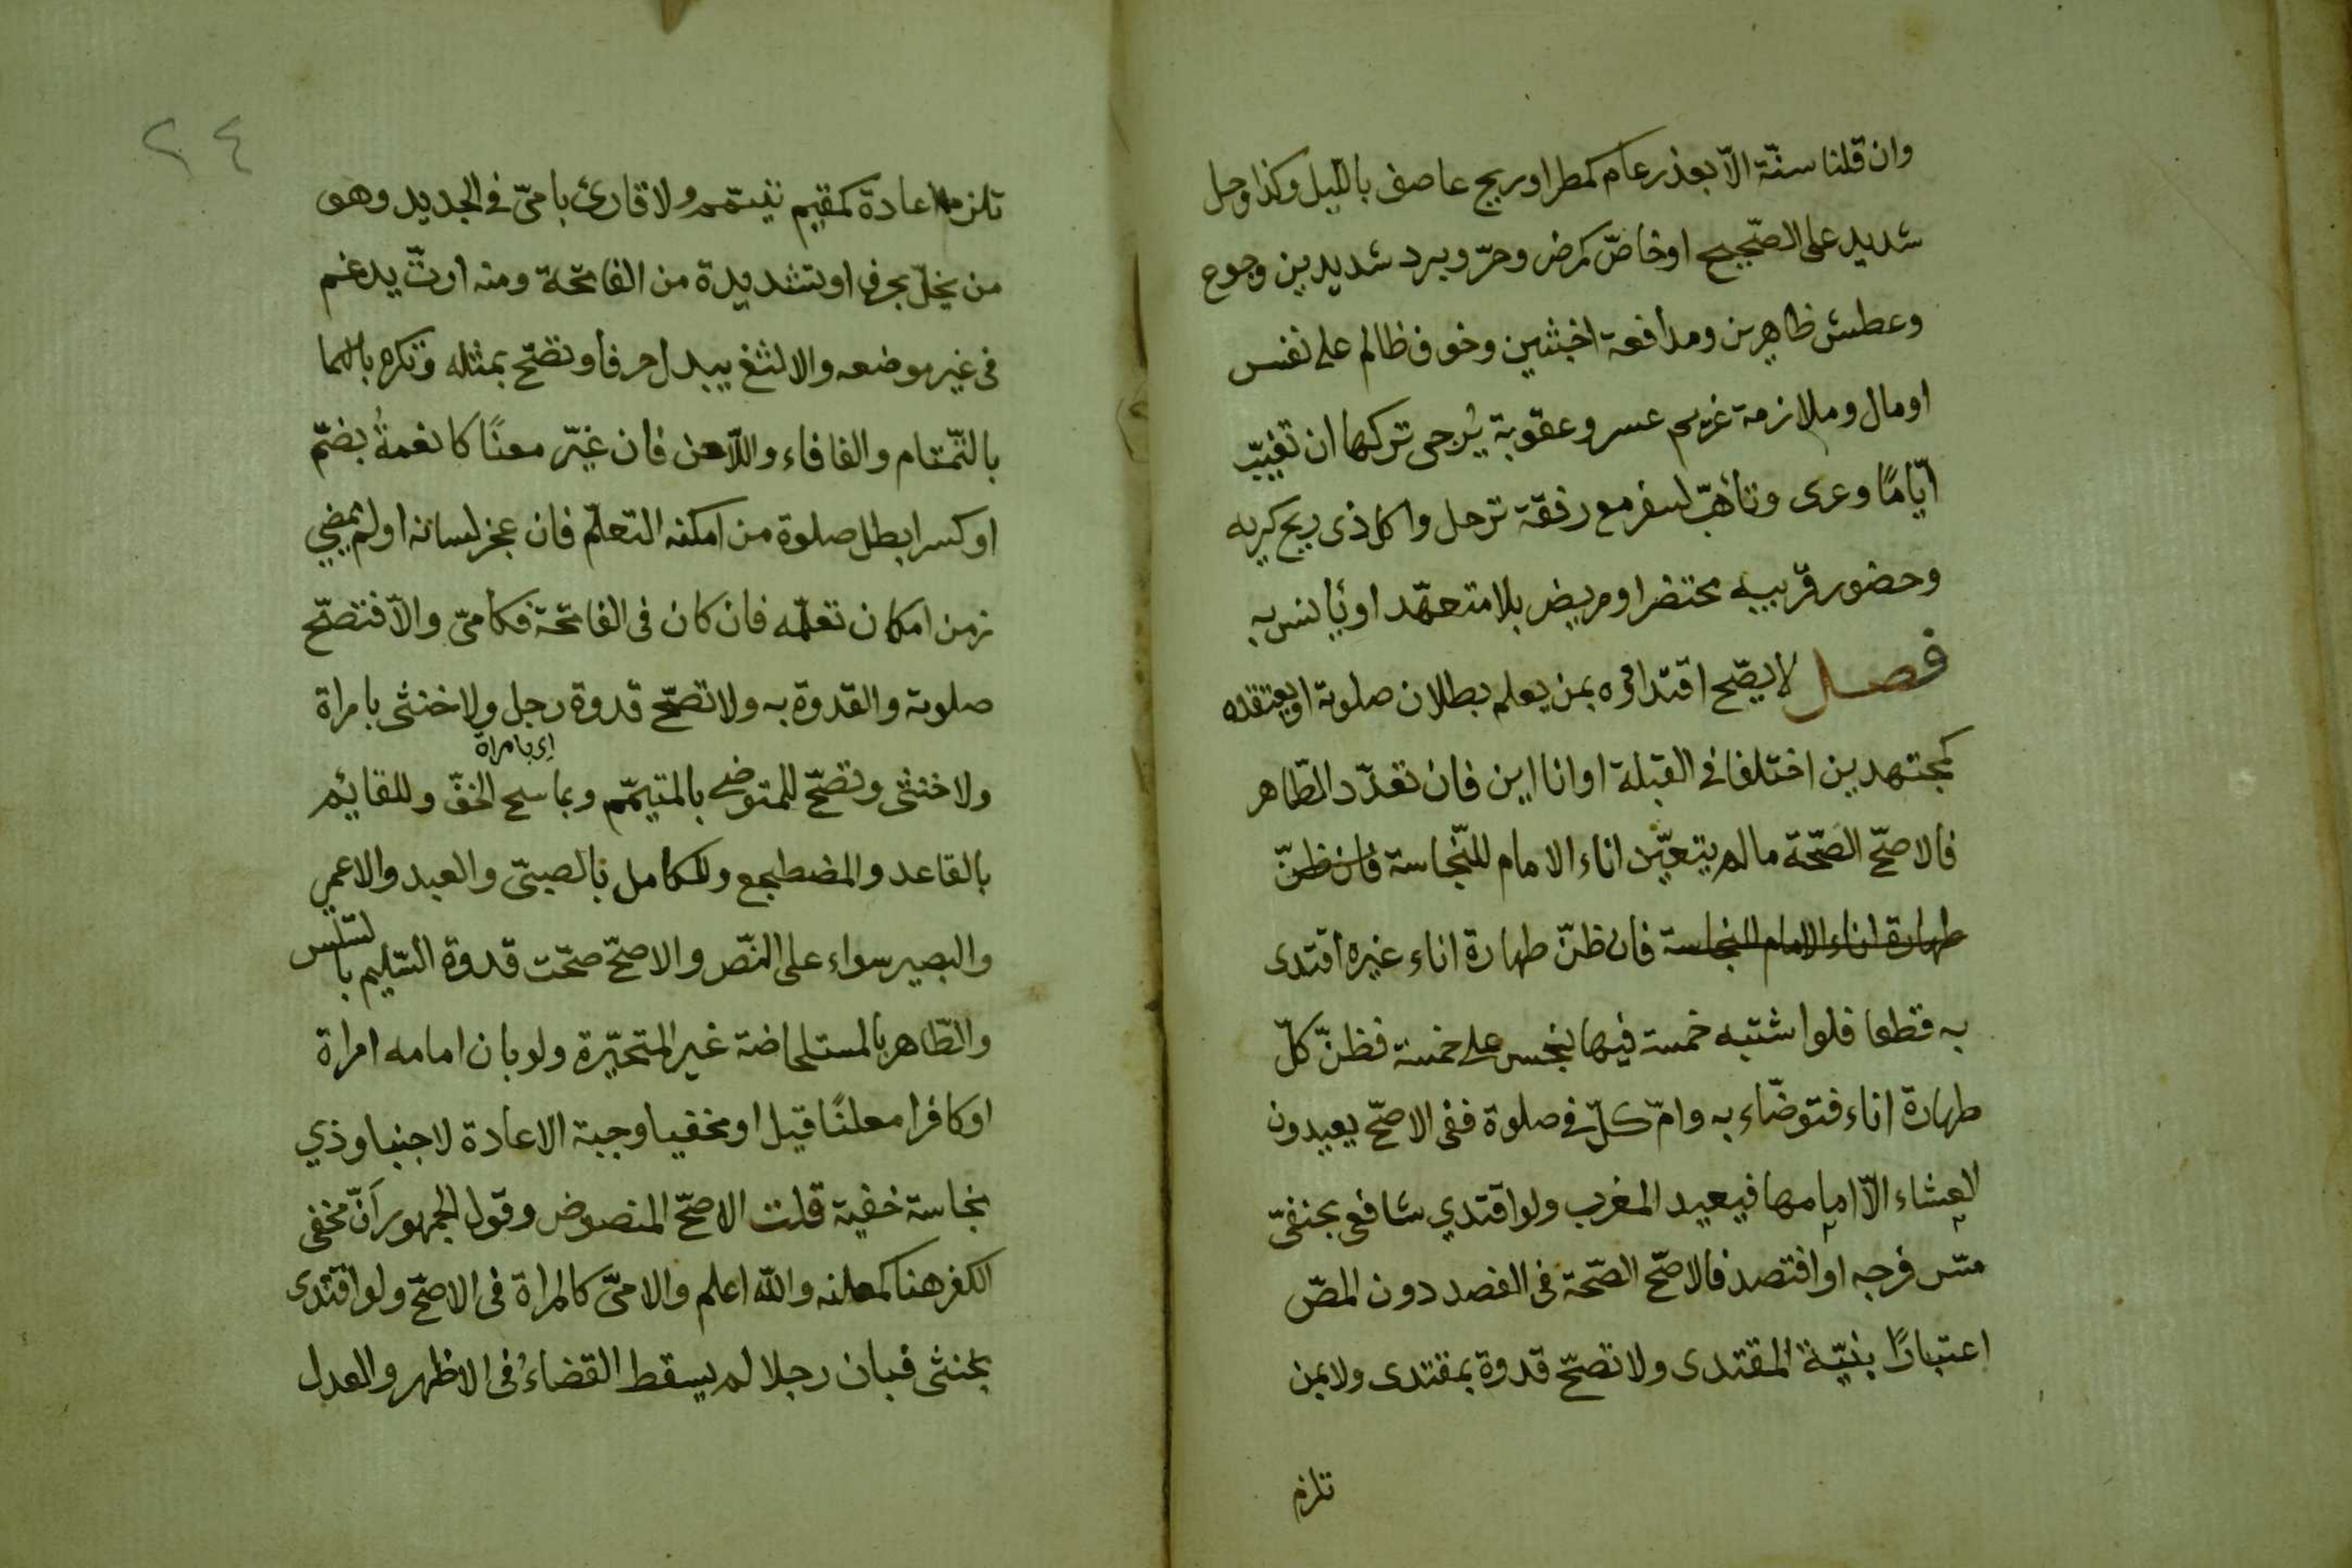 وان قلنا سنّة الّا بعذر عام كمطر او ريح عاصف بالليل وكذا وحل
شديد على الصّحيح او خاصّ كمرض وحرّ وبرد شديدين وجوع
وعطش ظاهرين ومدافعة اخبثين وخوف ظالم على نفس
او مال وملازمة غريم عسر وعقوبة يُرجى تركها ان تغيّب
ايّامًا وعرى وتأهّب لسفر مع رفقة ترحل واكل ذى ريح كريه
وحضور قريبه محتضر او مريض بلا متعهّد او يأنس به
فصل لا يصّح اقتداؤه بمن يعلم بطلان صلوته او يعتقده
كمجتهدين اختلفا في القبلة او اناءين فان تعدّد الطّاهر
فالاصحّ الصّحّة مالم يتعيّن اناء الامام للنّجاسة فان ظنّ
طهارة اناء الامام للنجاسة فان ظنّ طهارة اناء غيره اقتدى
به قطعا فلو اشتبه خمسة فيها نجس على خمسة فظنّ كلّ
طهارة اناء فتوضّاء به وامّ كلّ في صلوة ففى الاصحّ يعيدون
العشاء الّا امامها فيعيد المغرب ولو اقتدي شافعى بحنفىّ
مسّ فرجه او افتصد فالاصحّ الصّحة فى الفصد دون المسّ
اعتبارًا بنيّة المقتدى ولا تصحّ قدوة بمقتدى ولا بمن
تلزم
٢٤
تلزمه اعادة كمقيم تيمّم ولا قارئ بامىّ في الجديد وهو
من يخلّ بحرف او تشديدة من الفاتحة ومنه ارتّ يدغم
فى غير موضعه والالثغ يبدل حرفا وتصّح بمثله وتكره
بالتّمتام والفافاء واللّاحن فان غيّر معنًا كانعمتُ بضمّ
او كسر ابطل صلوة من امكنه التعلّم فان عجز لسانه او لم يمضِ
زمن امكان تعلّمه فان كان فى الفاتحة فكامىّ والّا فتصحّ
صلوته والقدوة به ولا تصحّ قدوة رجل ولا خنثى بامراة
اى بامراة
ولا خنثى وتصحّ للمتوضى بالمتيمّم وبماسح الخفّ وللقائم
بالقاعد والمضطجع وللكامل بالصبىّ والعبد والاعمى
والبصير سواء على النّصّ والاصحّ صحّت قدوة السّليم بالسّلس
والطّاهر بالمستحاضة غير المتحيّرة ولو بان امامه امراة
او كافرا معلنًا قيل او مخفيا وجبة الاعادة لا جنبا وذي
نجاسة خفية قلت الاصحّ المنصوص وقول الجمهور انّ مخفى
الكفر هنا كمعلنه والله اعلم والامىّ كالمراة فى الاصحّ ولو اقتدى
بخنثى فبان رجلا لم يسقط القضاءُ فى الاظهر والعدل